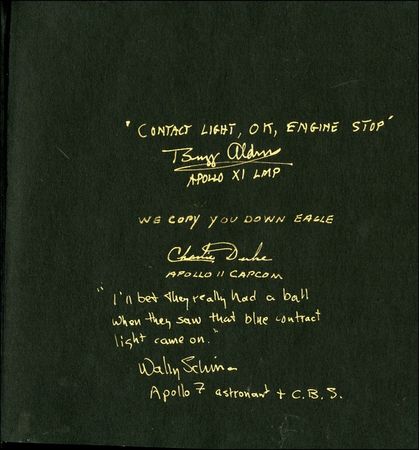 "CONTACT LIGHT, OK, ENGINE STOP"
Buzz Aldrin
APOLLO XI LMP
WE COPY YOU DOWN EAGLE
Charlie Duke
APOLLO 11 CAPCOM
"I'll bet they really had a ball
when they saw that blue contact
light came on."
Wally Schirra
Apollo 7 astronaut + C.B.S.